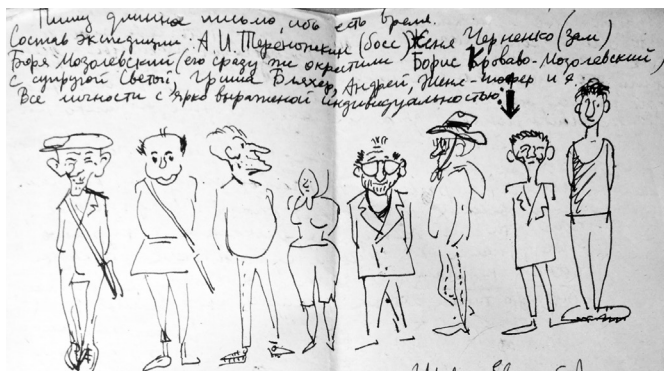 Пишу длинное письмо, ибо есть время.
Состав экспедиции: А.И. Тереножкин (босс) Женя Черненко (зам)
Боря Мозолевский (его сразу же окрестили Борис Кроваво-Мозолевский)
с супругой Светой, Гриша Бляхер, Андрей, Женя-шофер и я.
Все личности с ярко выраженой индивидуальностью.